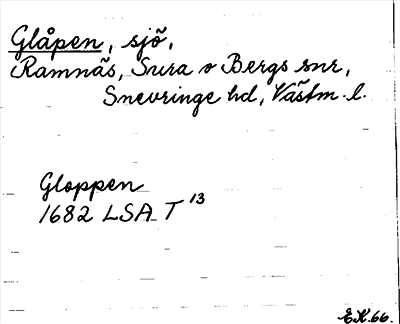 Glåpen, sjö,
Ramnäs, Sura o Bergs snr,
Snevringe hd, Västm. l.
Gloppen
1682 LSA T 13
E.K.66.